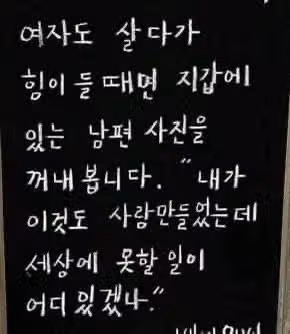 여자도 살다가
힘이 들 때면 지갑에
있는 남편 사진을
꺼내 봅니다. "내가
이것도 사람만들었는데
세상에 못할 일이
어디 있겠나."